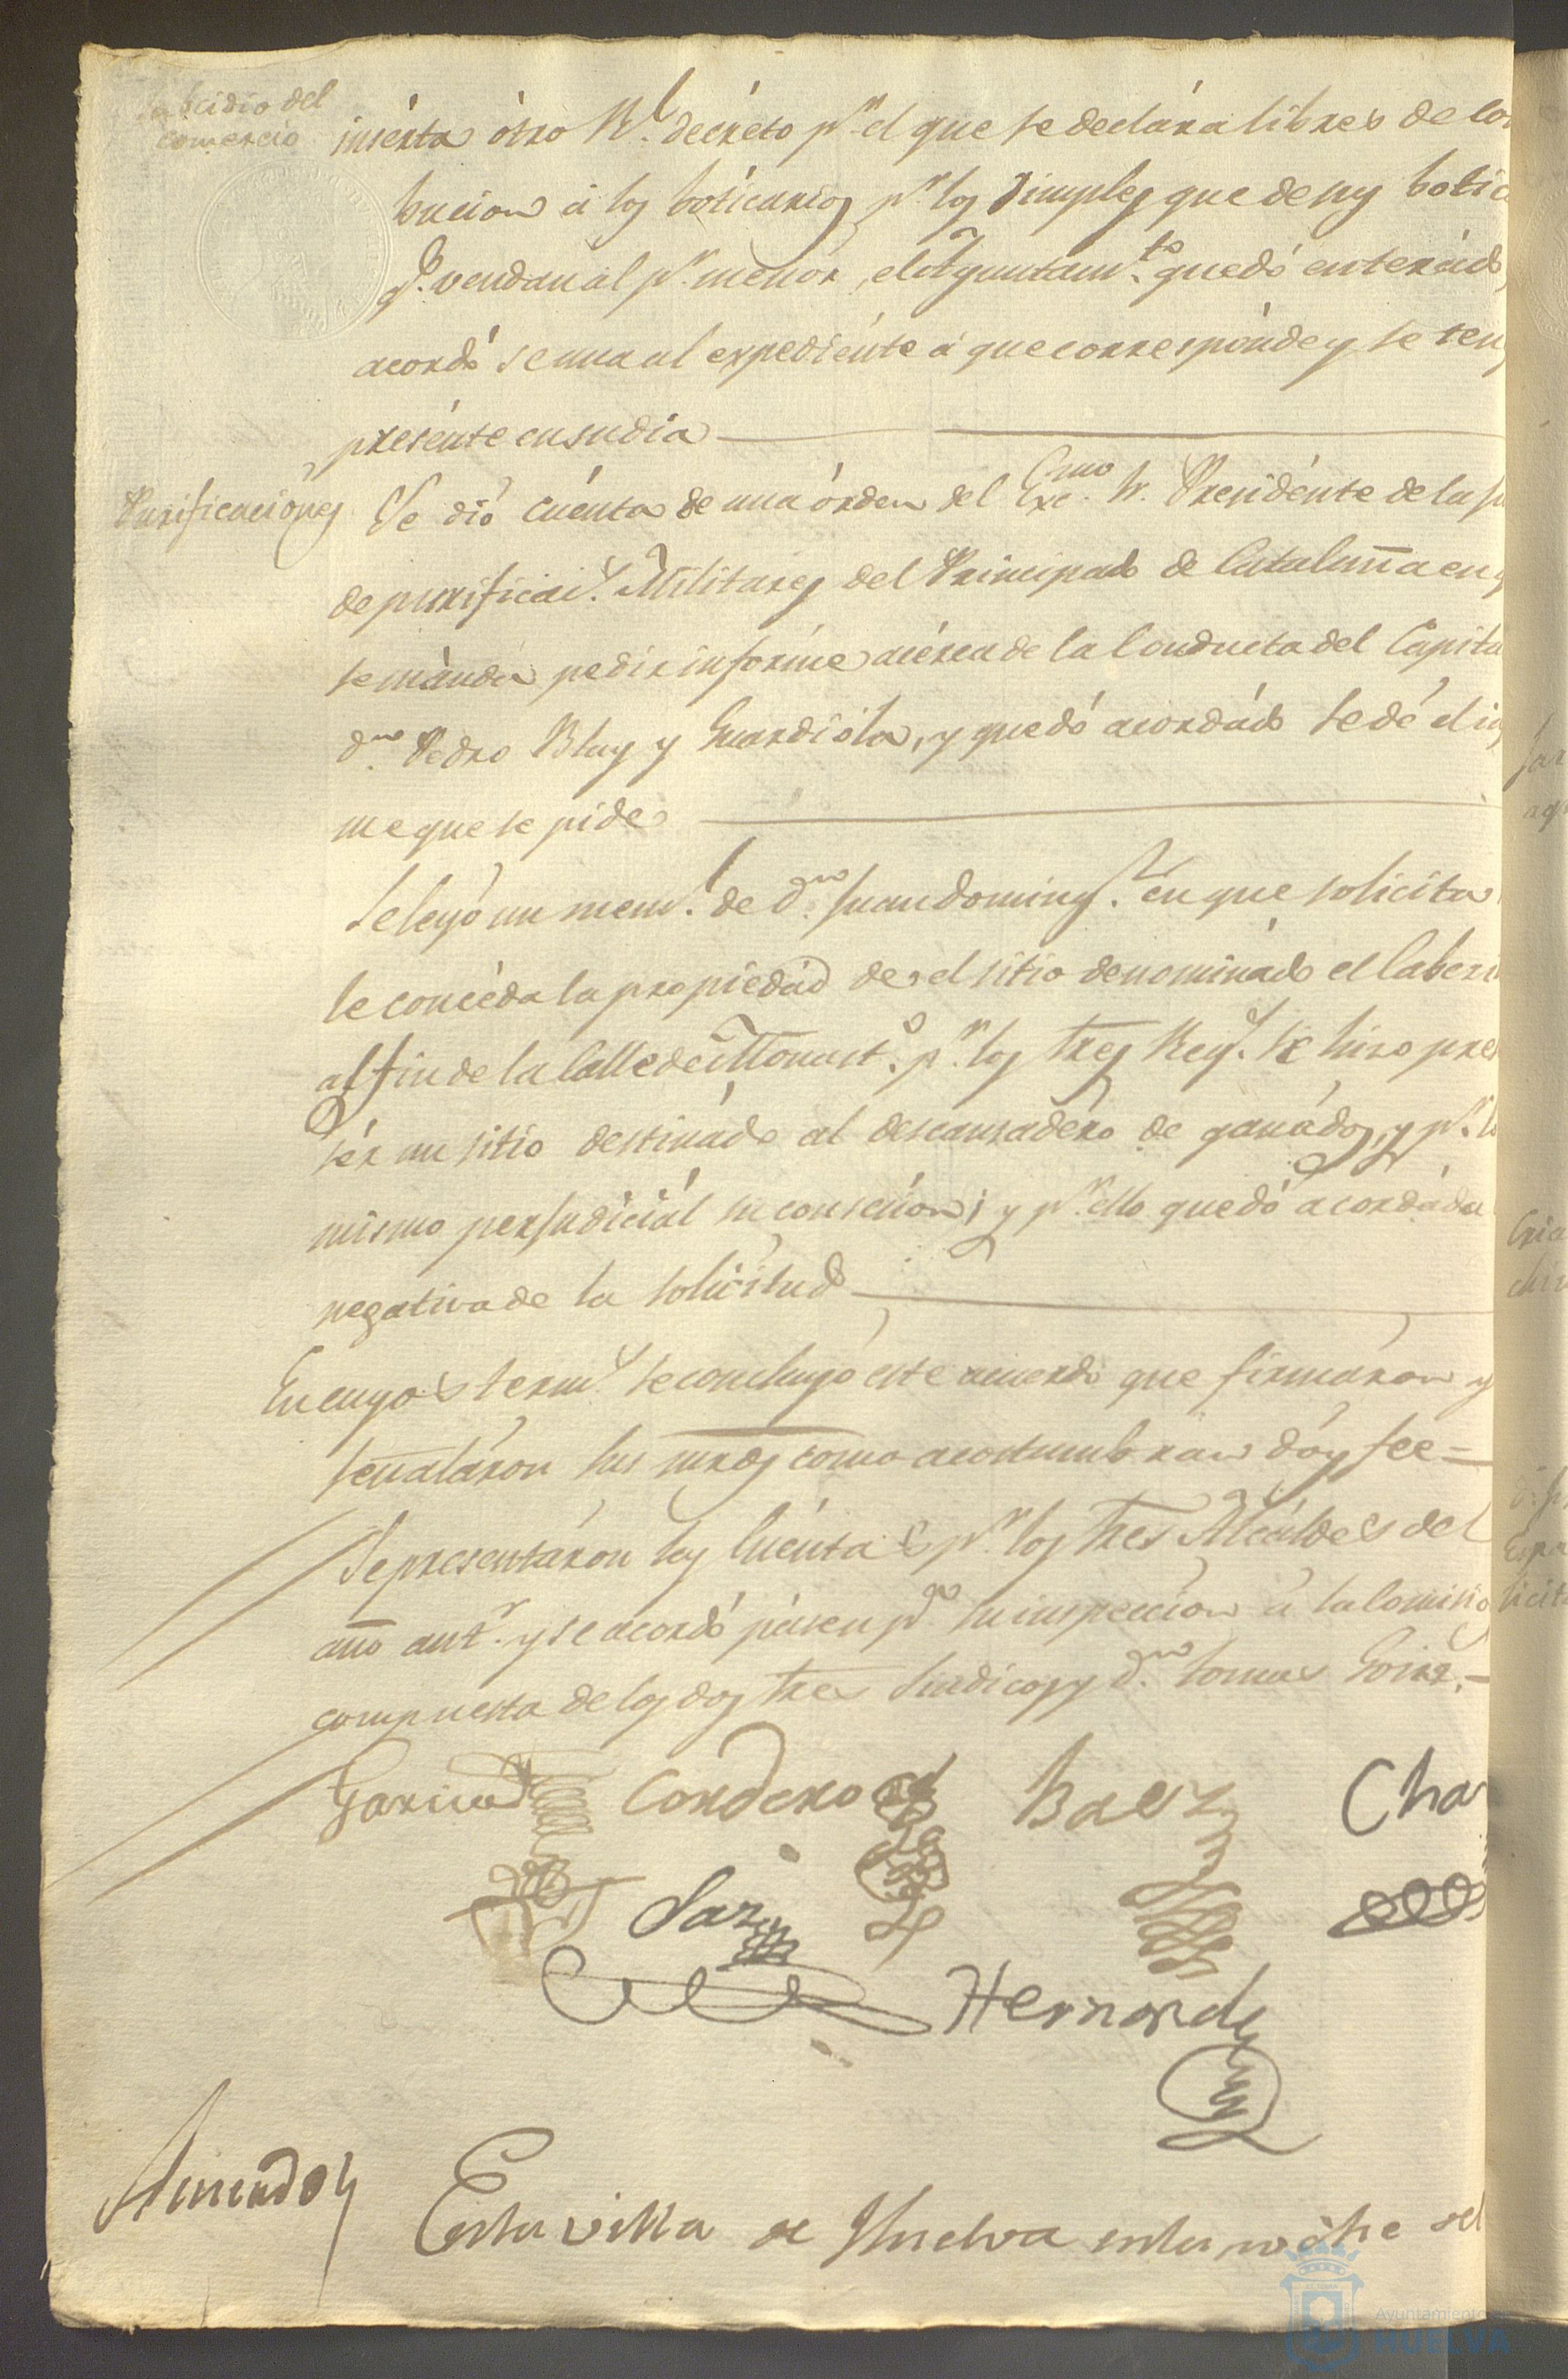 subcidio del
comercio
insérta ótro Rl. decréto pr. el que se declára libres de con
bucion á los boticarios pr. los Simples que de sus botic
qe. vendan al pr. menór, el Ayuntamto. quedó enterádo,
acordó se una al expediénte á que correspónde y se ten
presénte en su dia
Purificaciónes
Se dió cuénta de una órden del Excmo. Sr. Presidénte de la Ju
de purificacis. Militares del Principado de Cataluña en q
se mánda pedir infórme acérca de la Conducta del Capitá
dn. Pedro Blay y Guardióla, y quedó acordádo se dé el in
me que se pide
Se leyó un meml. de dn. Juan Domingz. en que solicita
se concéda la propiedád de el sitio denominádo el Laberi
al fin de la Calle de Monasto. pr. los tres Regs. se hizo pre
sér un sitio destinádo al descansadéro de ganádos, y pr. lo
mismo perjudiciál su concecion; y pr. ello quedó acordáda
negativa de la solicitud
En cuyos terms. se concluyó este acuerdo que firmáron y
señaláron sus mrds como acostumbran dóy fee =
Se presentáron las Cuéntas pr. los tres Alcáldes del
año antr. y se acordó pásen pa. su inspeccion á la Comisio
compuesta de los dos tres Sindicos y dn. Tomas Goinz. -
Garrido
Cordero
Baez
Cha
Saz
Hernandz
Acuerdo
En la villa de Huelva en la noche del
Ayuntamiento de
HUELVA